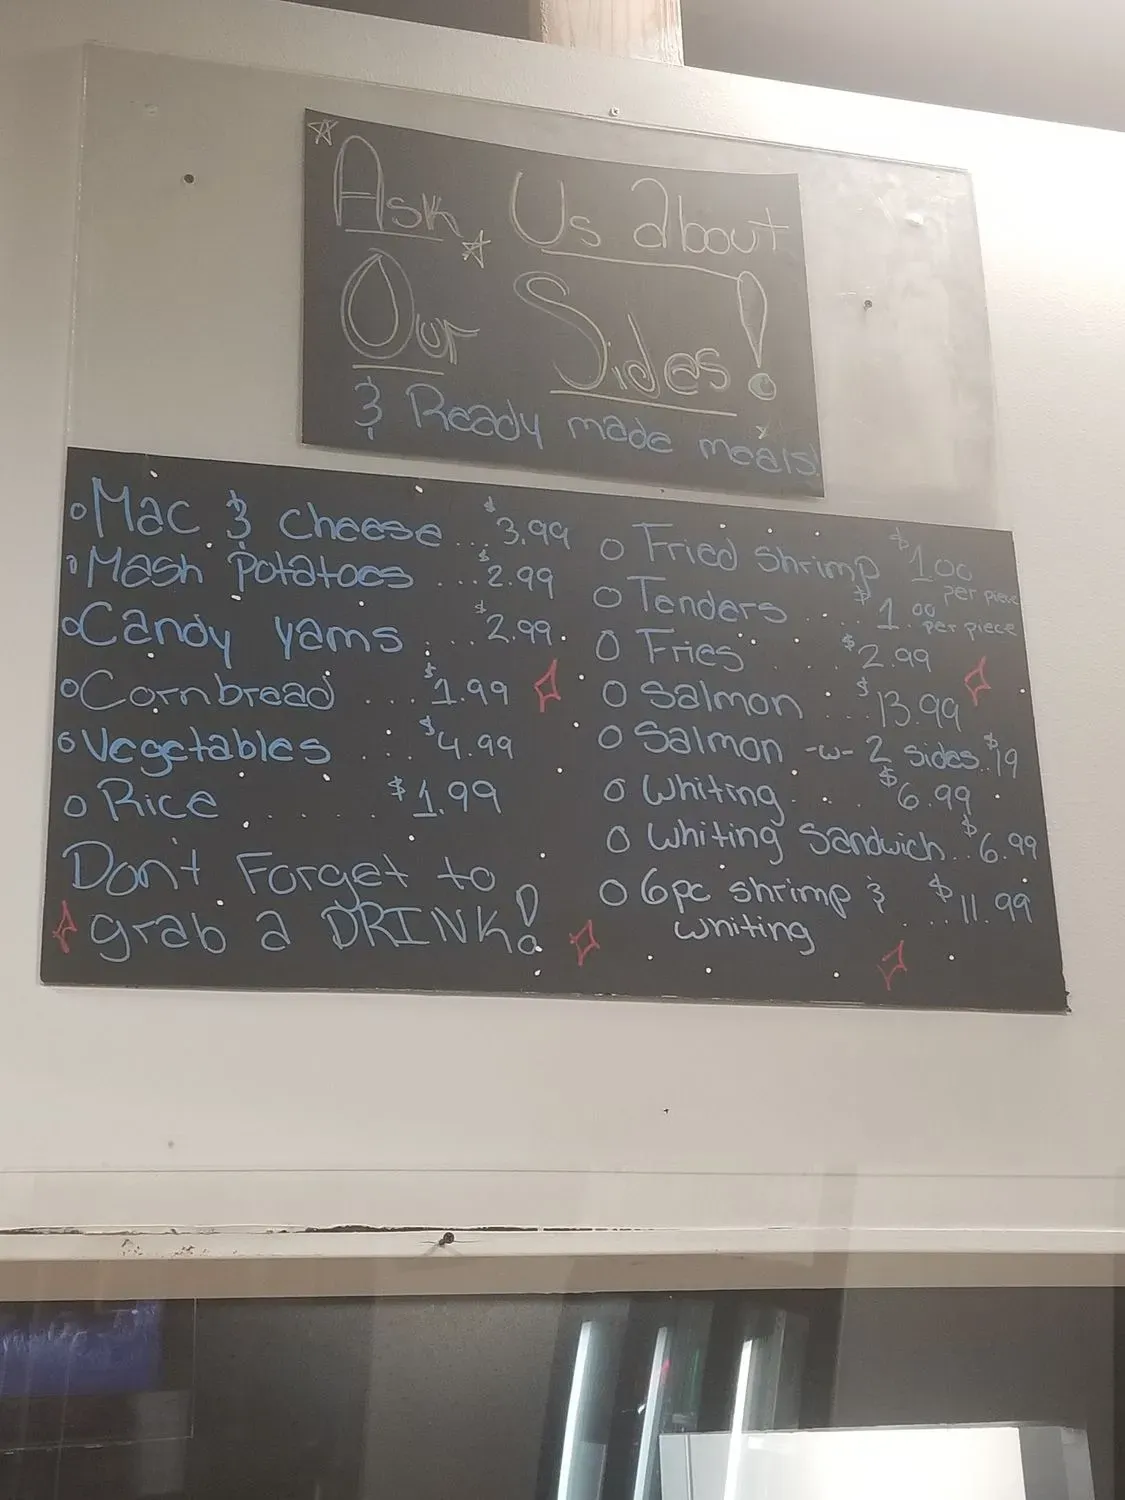 Ask Us about
Our Sides!
& Ready made meals!
Mac & Cheese ... $3.99
Mash Potatoes ... $2.99
Candy yams .... $2.99.
Cornbread .... $1.99
Vegetables ... $4.99
Rice ..... $1.99
Don't Forget to
grab a DRINK!
Fried shrimp $1.00
per piece
Tenders .... $1.00
per piece
Fries .... $2.99
Salmon ... $13.99
Salmon -w- 2 sides..$19
Whiting... $6.99
Whiting Sandwich..$6.99
6pc shrimp & .. $11.99
whiting